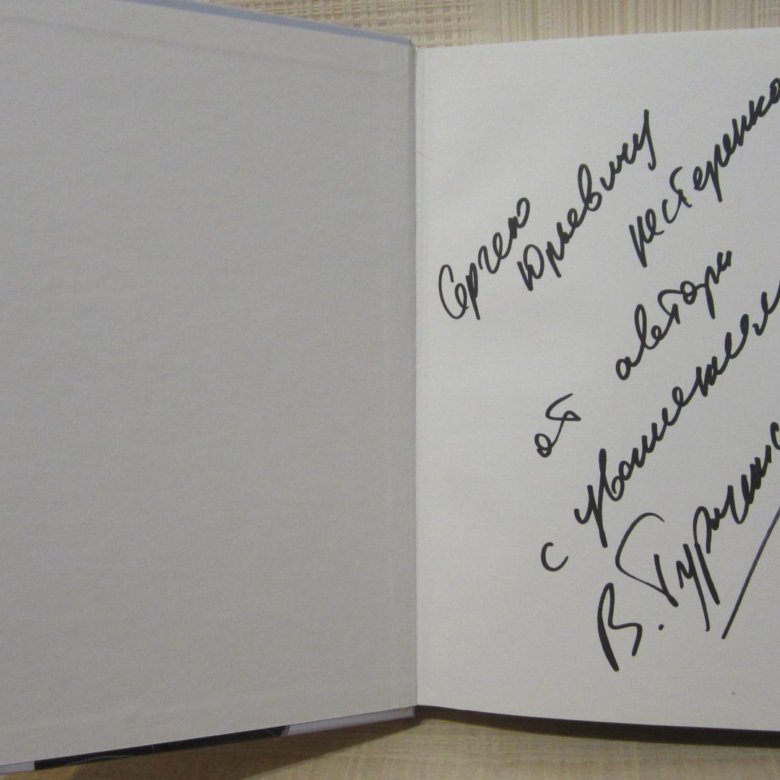 Сергею
Юрьевичу
Нестеренко
от автора
с уважением
В. Турченко